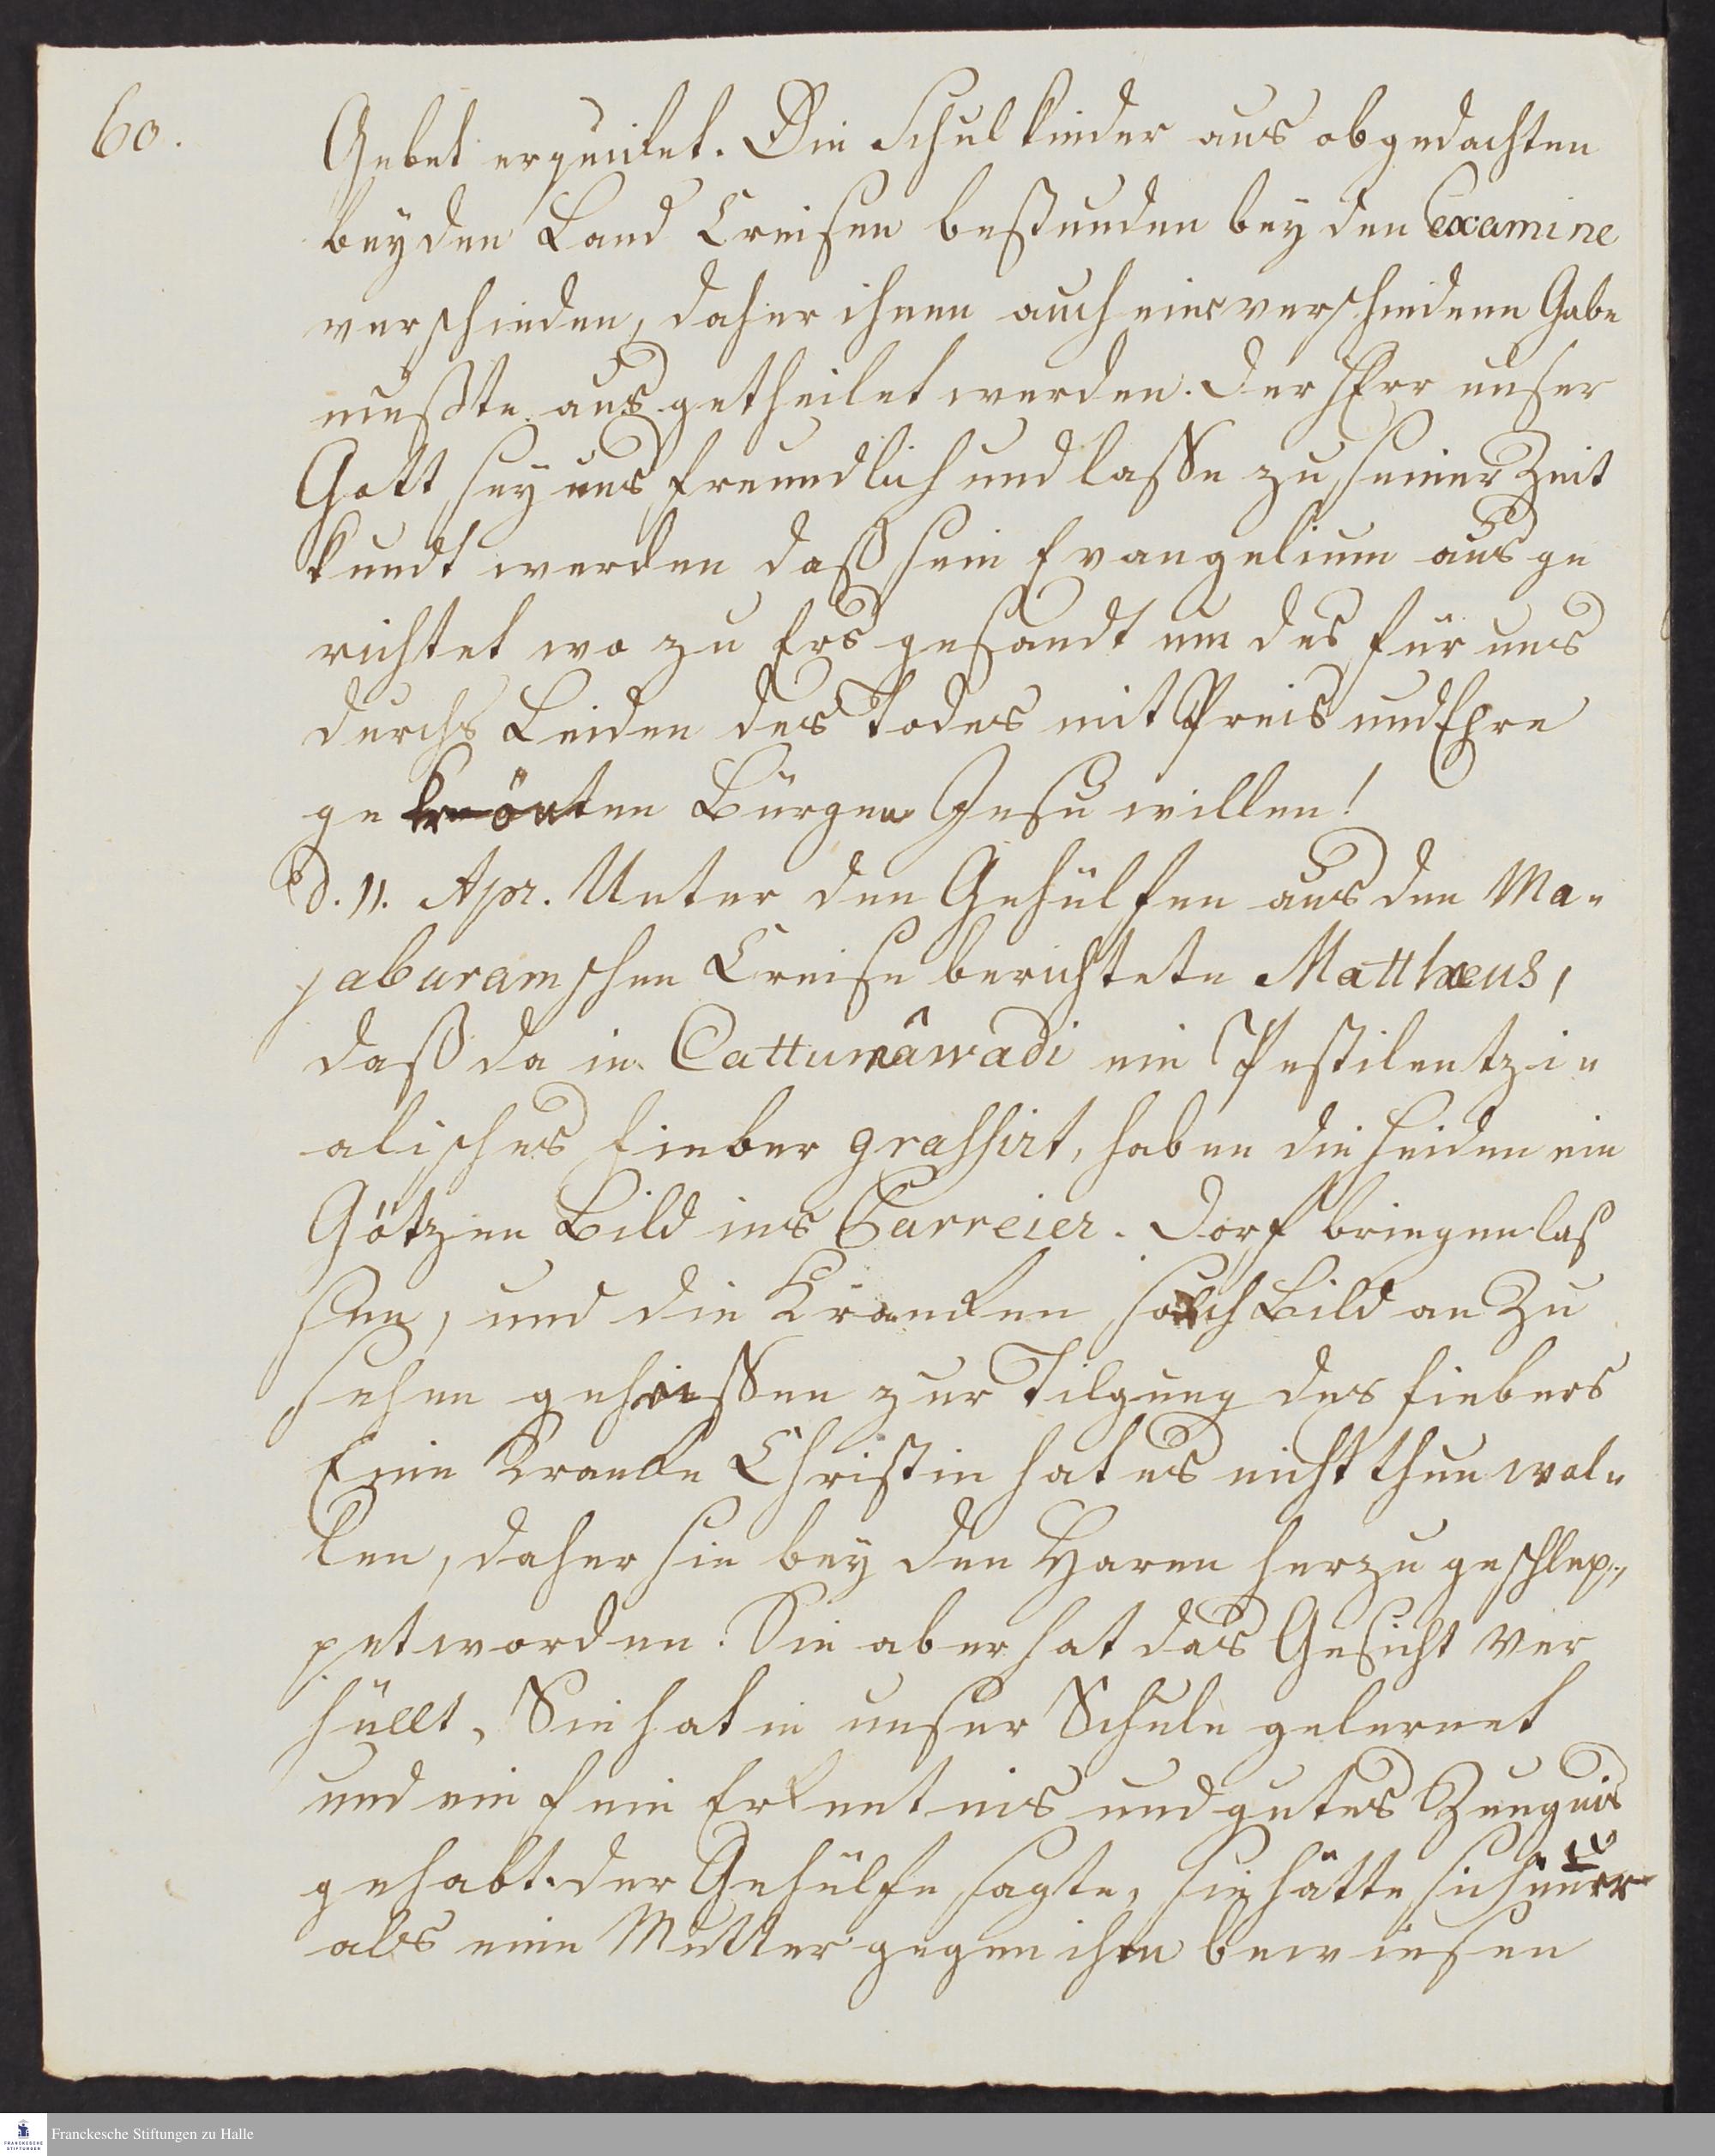 60.
Gebet erquicket. Die Schul kinder aus obgedachten
beyden Land Creisen bestunden bey den Examine
verschieden, daher ihnen auch eine verschiedene Gabe
mußte ausgetheilet werden. Der HErr unser
Gott sey uns freundlich und lasse zu seiner Zeit
kundt werden daß sein Evangelium ausge
richtet wo zu Ers gesandt um des für uns
durchs Leiden des Todes mit Preis und Ehre
gekrönten Bürgen Jesu willen!
d. 11. Apr. Unter den Gehülfen aus den Ma=
jaburamschen Creise berichtete Matthæus,
daß da in Cattumâwadi ein Pestilentzi=
alisches Fieber grassirt, haben die Heiden ein
Götzen Bild ins Barreier-Dorf bringen las
sen, und die Krancken solch Bild an Zu
sehen geheissen zur Tilgung des Fiebers
Eine Krancke Christin hat es nicht thun wol=
len, daher sie bey den Haren herzu geschlep=
pet worden. Sie aber hat das Gesicht ver
hüllt. Sie hat in unser Schule gelernet
und ein fein Erkentnis und gutes Zeugnis
gehabt. der Gehülfe sagte, sie hätte sich
als eine Mutter gegen ihn bewiesen
Franckesche Stiftungen zu Halle
FRANCKESCHE STIFTUNGEN